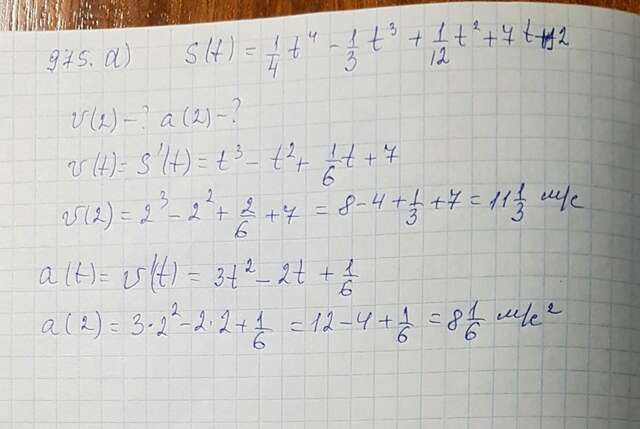 975. а) S(t) = 1/4 t⁴ - 1/3 t³ + 1/12 t² + 7t + 2
v(2) - ? a(2) - ?
v(t) = S'(t) = t³ - t² + 1/6 t + 7
v(2) = 2³ - 2² + 2/6 + 7 = 8 - 4 + 1/3 + 7 = 11 1/3 м/с
a(t) = v'(t) = 3t² - 2t + 1/6
a(2) = 3·2² - 2·2 + 1/6 = 12 - 4 + 1/6 = 8 1/6 м/с²